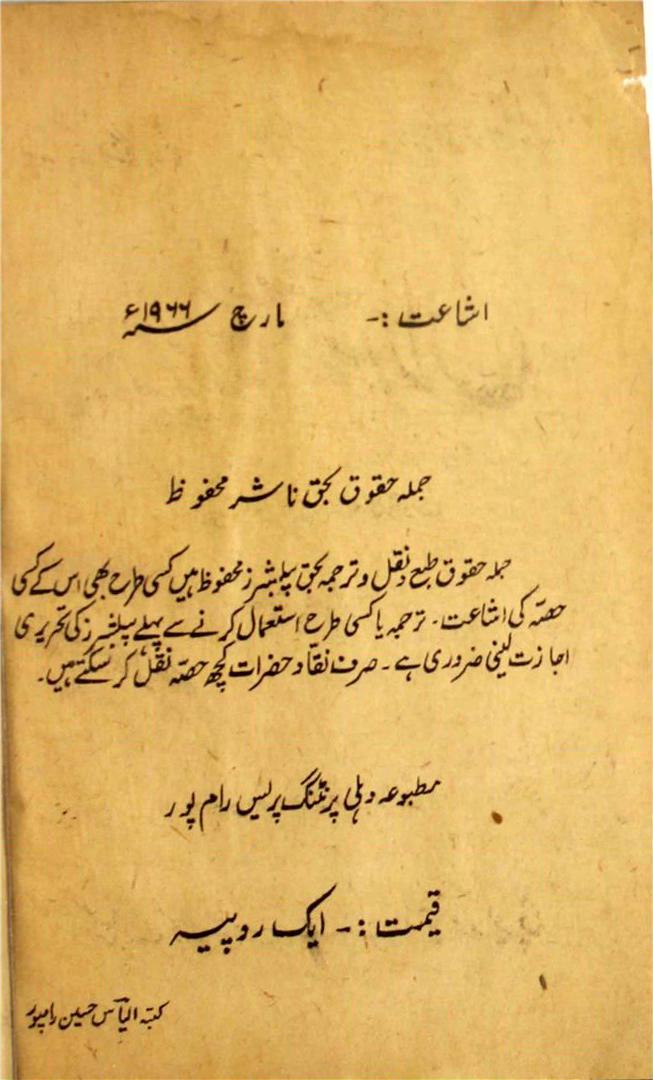 اشاعت :- مارچ ۱۹۶۶ء
جملہ حقوق بحق ناشر محفوظ
جملہ حقوق طبع و نقل و ترجمہ بحق پبلشرز محفوظ ہیں کسی طرح بھی اس کے کسی
حصہ کی اشاعت۔ ترجمہ یا کسی طرح استعمال کرنے سے پہلے پبلشرز کی تحریری
اجازت لینی ضروری ہے۔ صرف نقاد حضرات کچھ حصہ نقل کر سکتے ہیں۔
مطبوعہ دہلی پرنٹنگ پریس رام پور
قیمت :- ایک روپیہ
کتبہ الیاس حسین رامپور